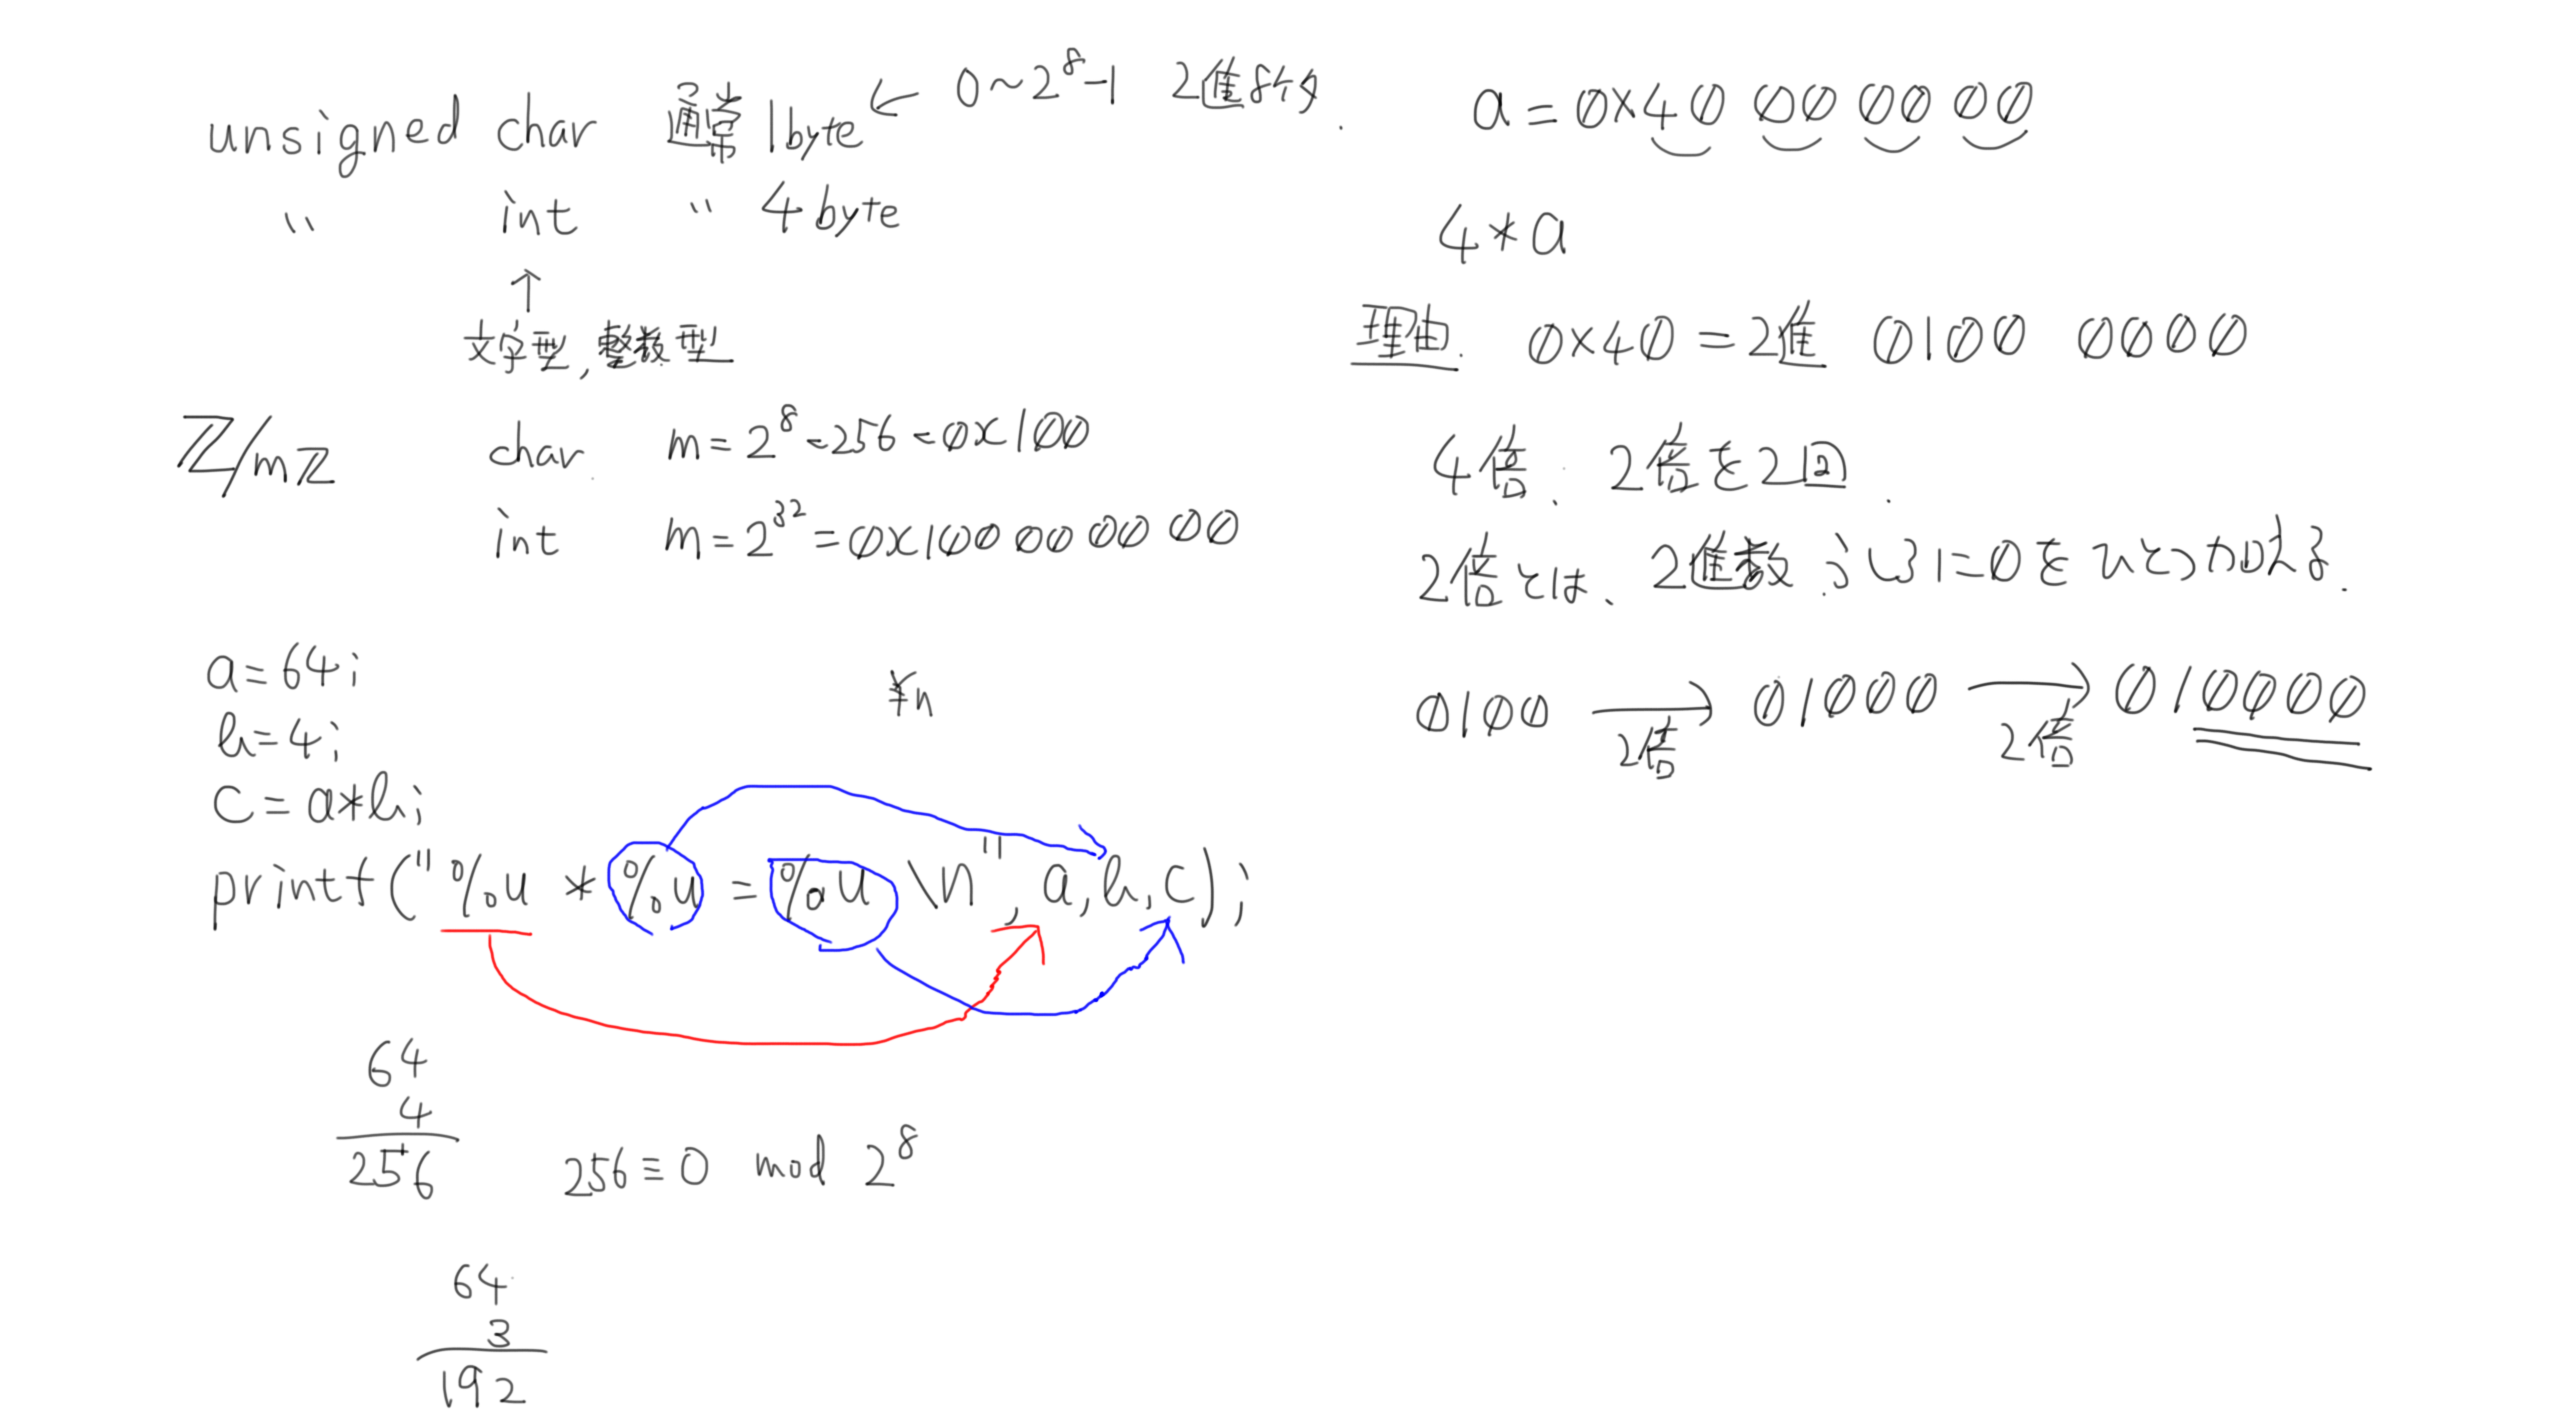 unsigned char 通常 1byte ← 0～2^8-1 2進8ケタ.
〃 int 〃 4byte
↑
文字型, 整数型
ℤ/mℤ char. m=2^8=256=0x100
int m=2^32=0x100 00 00 00
a=64;
b=4;
c=a*b;
¥n
printf("%u * %u = %u \n", a,b,c);
64
4
256
256≡0 mod 2^8
64
3
192
a=0x40 00 00 00
4*a
理由. 0x40=2進 0100 0000
4倍、2倍を2回.
2倍とは、2進数うしろに0をひとつ加える.
0100 → 01000 → 010000
2倍 2倍